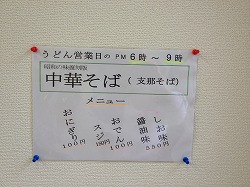 うどん営業日の PM 6時〜9時
昭和の味復刻版
中華そば(支那そば)
メニュー
しお味
醤油味
550円
おでん
100円
スジ
180円
おにぎり
100円